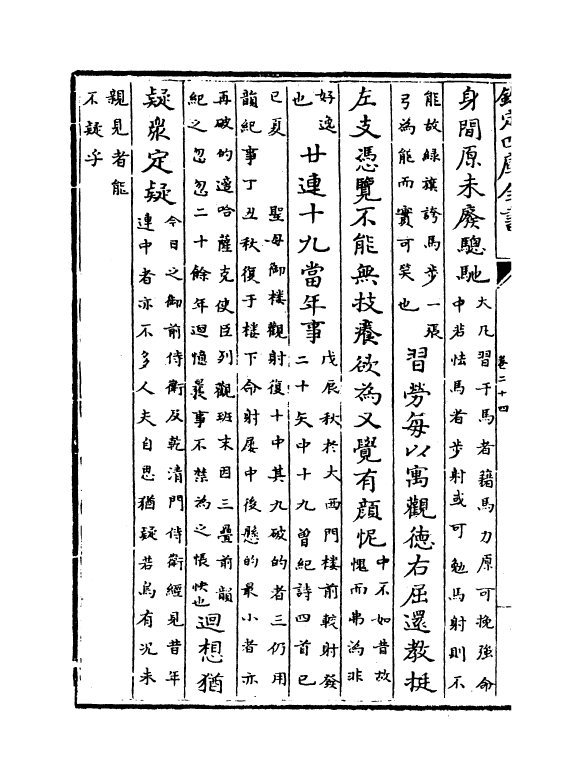 欽定四庫全書
卷二十四
身間原未廢驄馳
大凡習于馬者籍馬力原可挽強命
中若怯馬者步射或可勉馬射則不
能故緑旗誇馬步一張
弓為能而實可笑也
習勞每以寓觀徳右屈還教挺
左支憑覽不能無技癢欲為又覺有顔忸
中不如昔故
愧而弗為非
好逸
也
廿連十九當年事
戊辰秋於大西門樓前較射發
二十矢中十九曾紀詩四首已
已夏 聖母御樓觀射復十中其九破的者三仍用
韻紀事丁丑秋復于樓下命射屡中後懸的最小者亦
再破的適哈薩克使臣列觀班末因三疊前韻
紀之忽忽二十餘年迴憶曩事不禁為之悵怏也
迴想猶
疑衆定疑
今日之御前侍衛及乾清門侍衛經見昔年
連中者亦不多人夫自思猶疑若烏有况未
親見者能
不疑乎